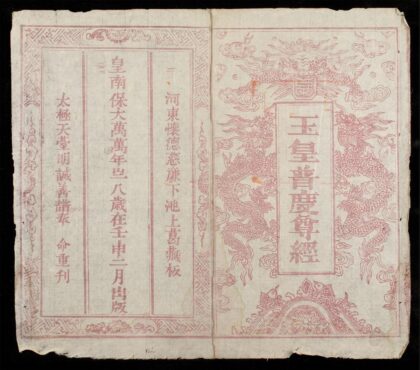 玉皇普慶尊經
河東懷德慈廉下池上葛藏板
皇南保大萬萬年之八歲在壬申二月出版
太極天臺明誠善譜奉 命重刊